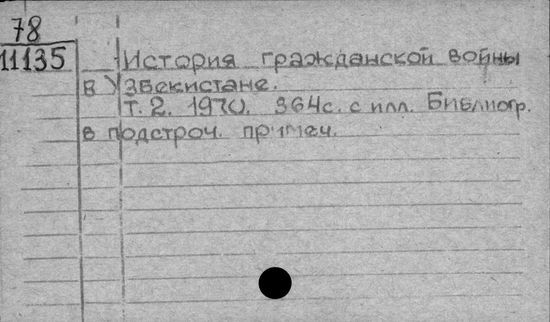 78
11135
История гражданской войны
в Узбекистане.
Т. 2. 1970. 364с. с илл. Библиогр.
в подстроч. примеч.